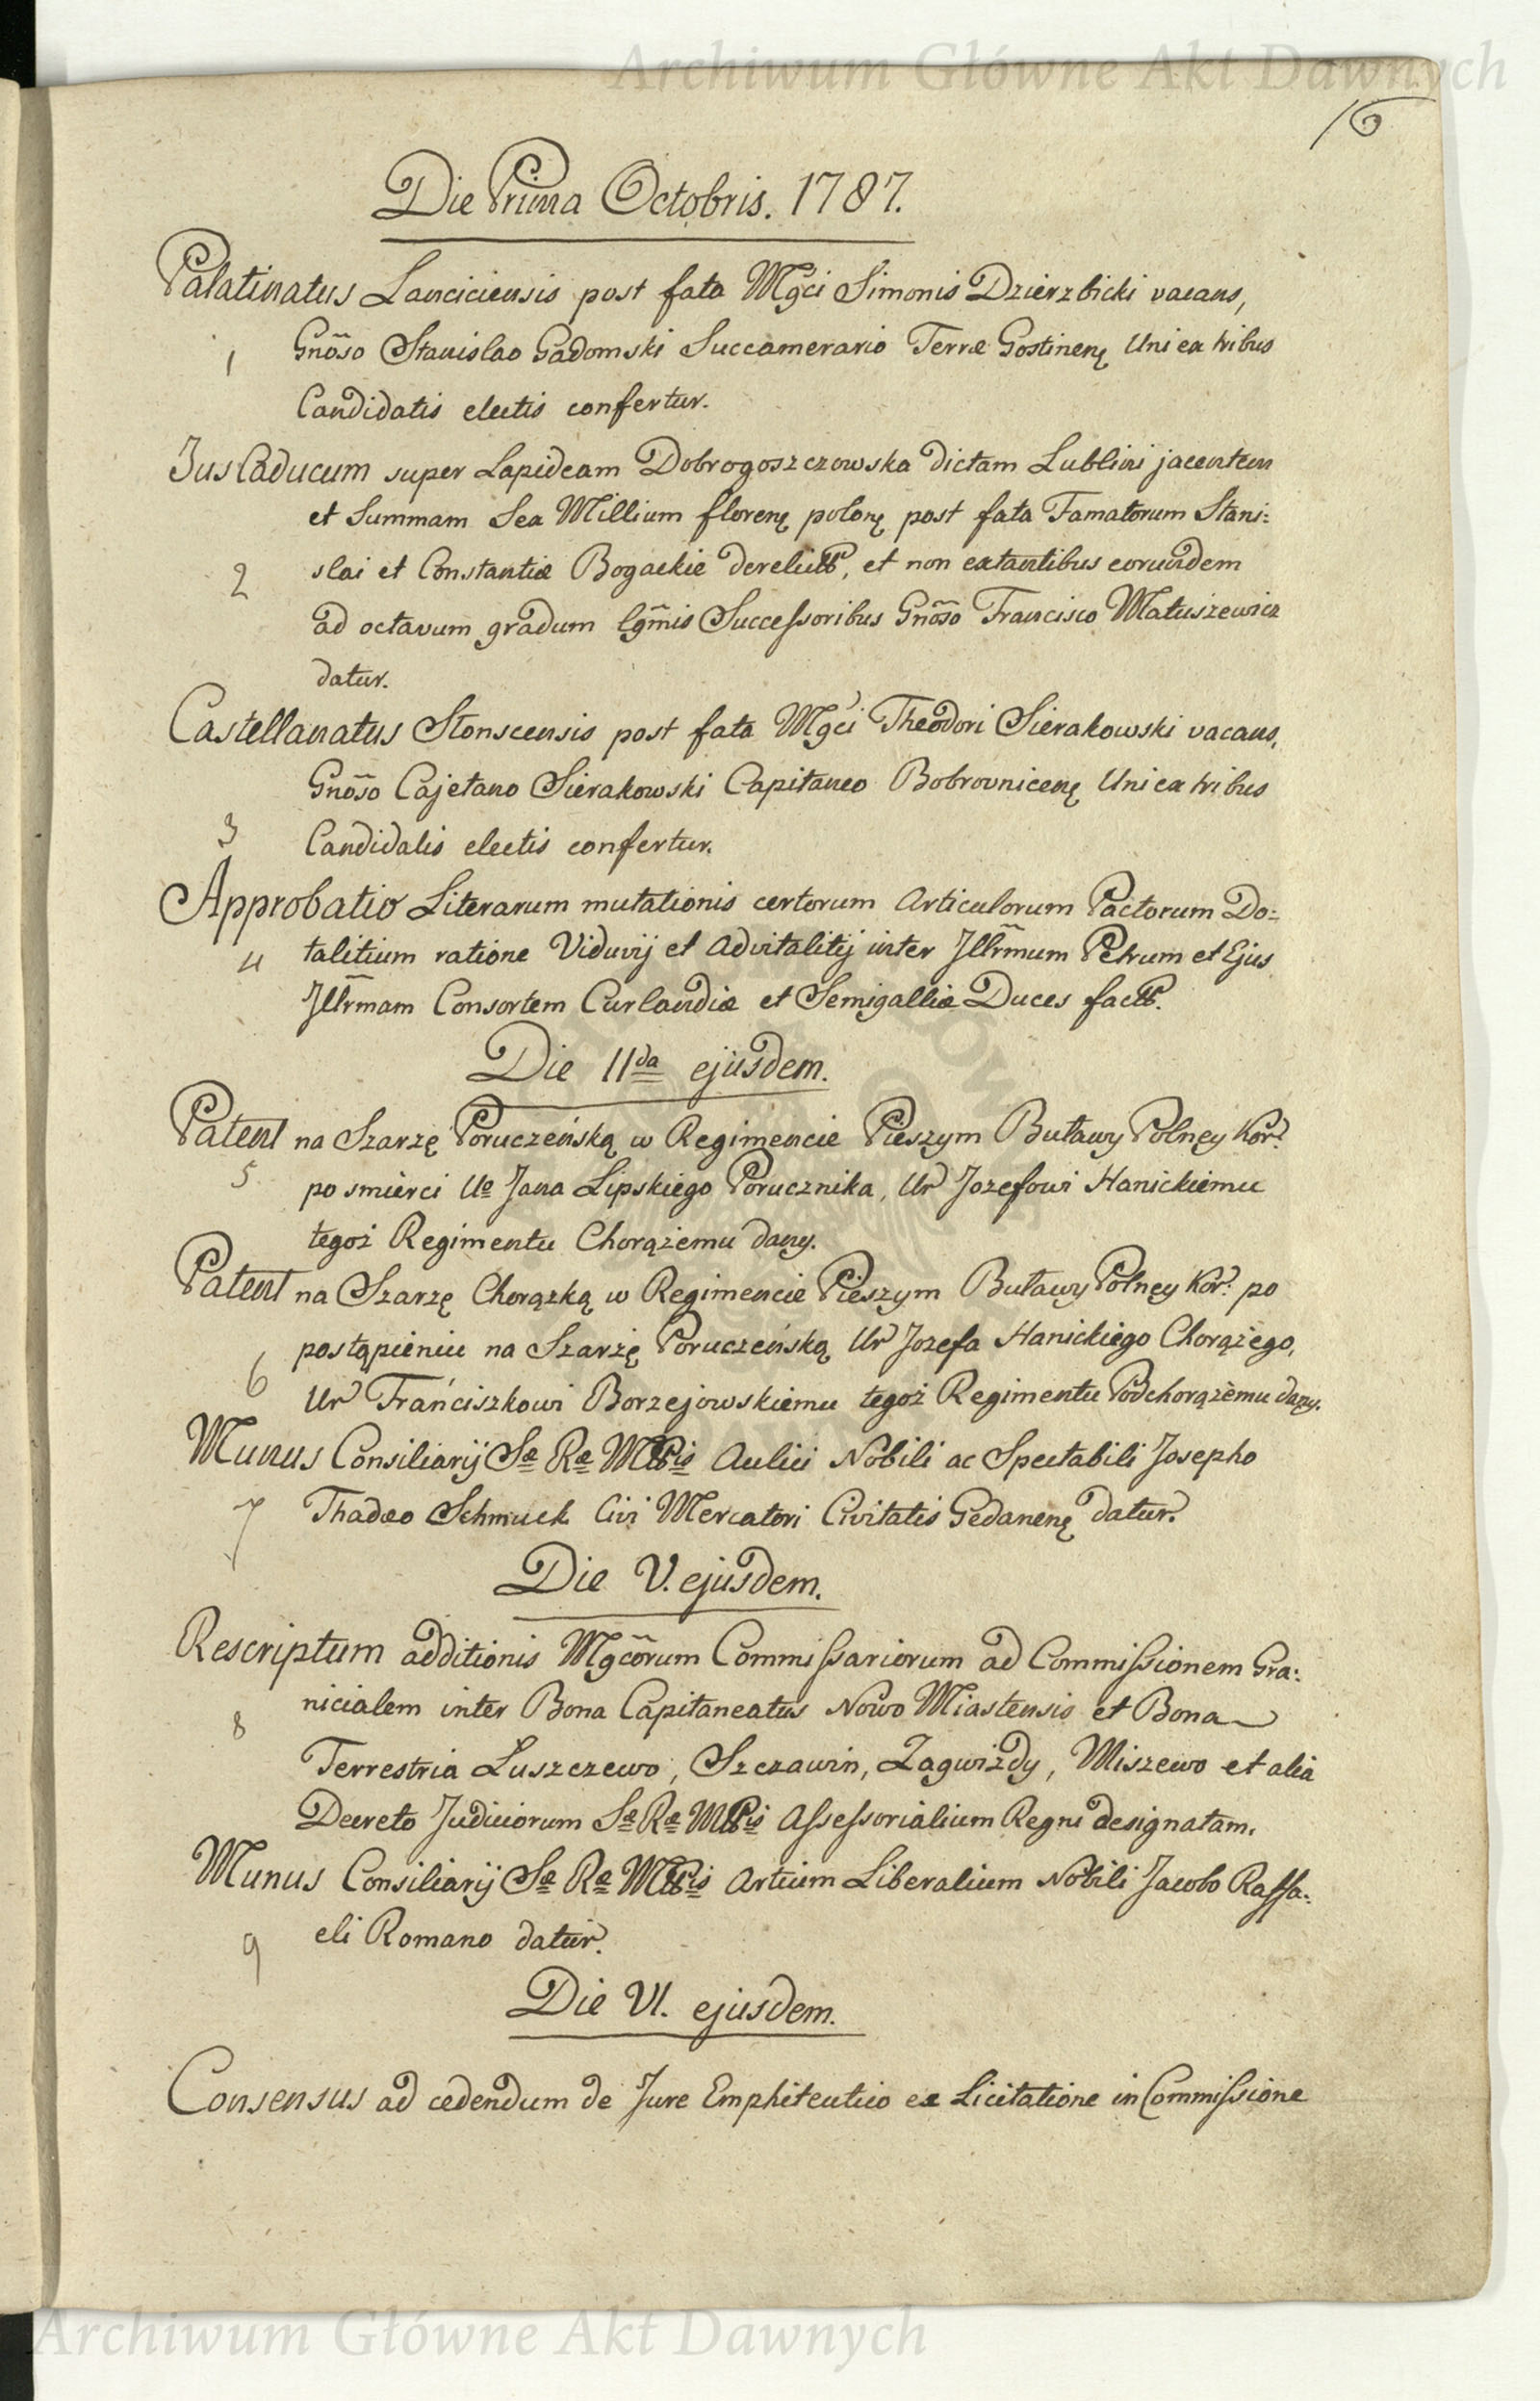 Archiwum Główne Akt Dawnych
16
Die Prima Octobris. 1787.
Palatinatus Lanciciensis post fata Mgci Simonis Dzierzbicki vacans,
1 Gnõso Stanislao Gadomski Succamerario Terræ Gostinenę Uni ex tribus
Candidatis electis confertur.
Jus Caducum super Lapideam Dobrogoszczowska dictam Lublini jacentem
et Summam Sex Millium florenę polonę post fata Famatorum Stani:
2 slai et Constantiæ Bogackie derelict, et non extantibus eorundem
ad octavum gradum lgm̃is Successoribus Gnõso Francisco Matuszewicz
datur.
Castellanatus Słonscensis post fata Mgci Theodori Sierakowski vacans,
Gnõso Cajetano Sierakowski Capitaneo Bobrovnicenę Uni ex tribus
3 Candidatis electis confertur.
Approbatio Literarum mutationis certorum Articulorum Pactorum Do:
4 talitium ratione Viduvij et Advitalitij inter Jllrm̃um Petrum et Ejus
Jllrm̃am Consortem Curlandiæ et Semigalliæ Duces fact.
Die IIda ejusdem.
Patent na Szarzę Poruczeńską w Regimencie Pieszym Buławy Polney Kor:
5 po smierci Uo Jana Lipskiego Porucznika, Ur Jozefowi Hanickiemu
tegoż Regimentu Chorążemu dany.
Patent na Szarzę Chorązką w Regimencie Pieszym Buławy Polney Kor: po
postąpieniu na Szarżę Poruczeńską Ur Jozefa Hanickiego Chorążego,
6 Ur Franciszkowi Borzejowskiemu tegoż Regimentu Podchorążemu dany.
Munus Consiliarij Sæ Ræ Mttis Aulici Nobili ac Spectabili Josepho
7 Thadæo Schmuck Civi Mercatori Civitatis Gedanenę datur.
Die V. ejusdem.
Rescriptum additionis Mgcõrum Commissariorum ad Commissionem Gra:
nicialem inter Bona Capitaneatus Nowo Miastensis et Bona
8 Terrestria Luszczewo, Szczawin, Zagwizdy, Miszewo et alia
Decreto Judiciorum Sæ Ræ Mttis Assessorialium Regni designatam.
Munus Consiliarij Sæ Ræ Mttis Artium Liberalium Nobili Jacobo Raffa:
9 eli Romano datur.
Die VI. ejusdem.
Consensus ad cedendum de Jure Emphiteutico ex Licitatione in Commissione
Archiwum Główne Akt Dawnych